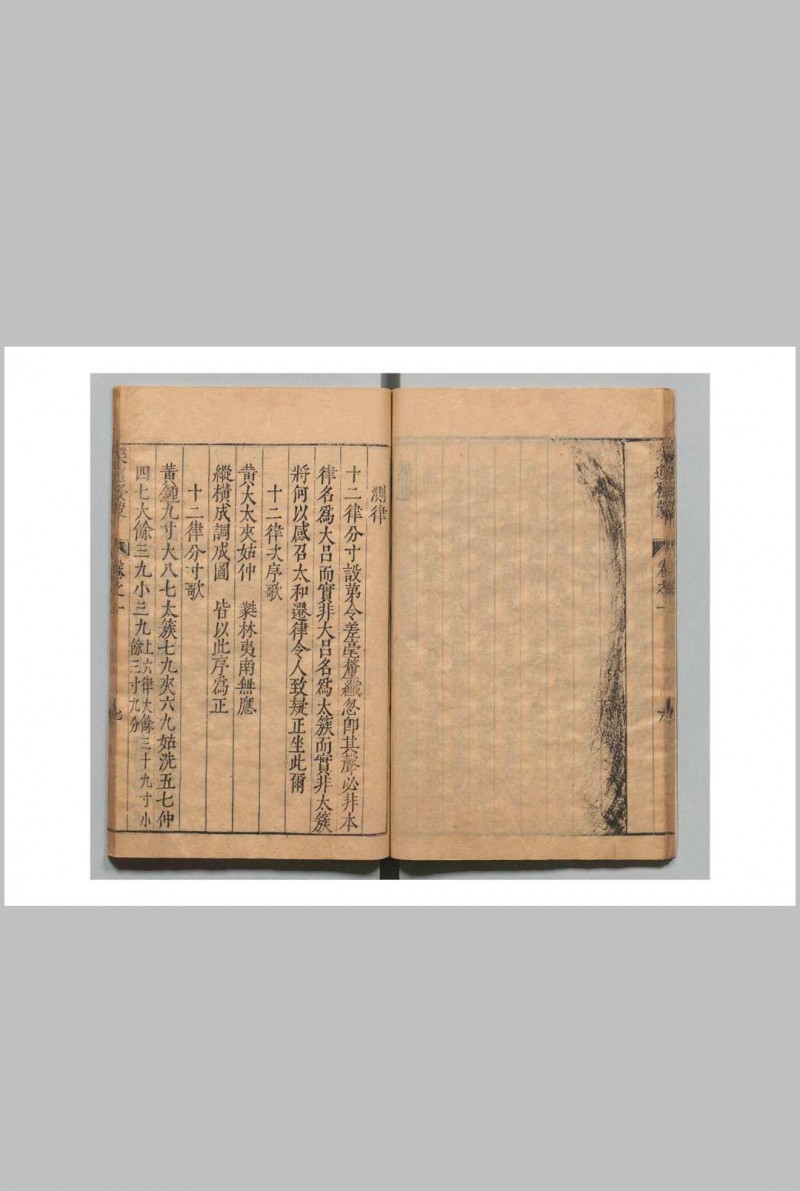 卷之一
測律
十二律分寸設第令差毫釐纖忽卽其聲必非本
律名爲大呂而實非大呂名爲太簇而實非太簇
將何以感召太和遷律令人致疑正坐此爾
十二律次序歌
黄大太夾姑仲 蕤林夷南無應
縱橫成調成圖 皆以此序爲正
十二律分寸歌
黄鍾九寸大八七太簇七九夾六九姑洗五七仲
四七大餘三九小三九上六律大餘三十九寸小
餘三寸九分
卷之一
七